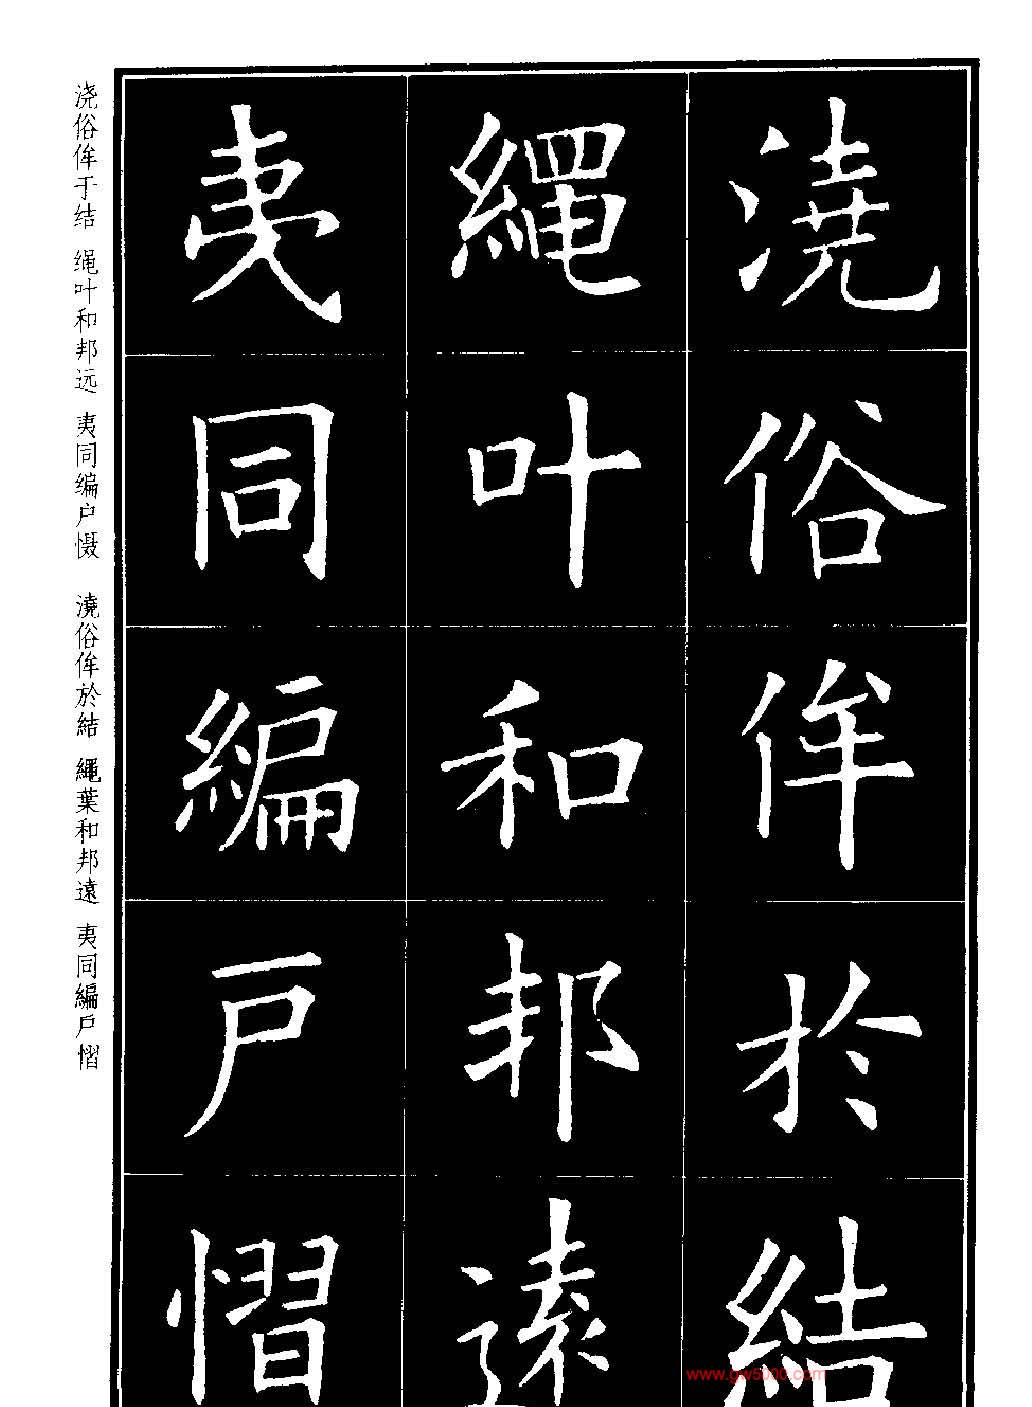 澆俗侔於結
繩叶和邦遠
夷同編戶慴
浇俗侔于结 绳叶和邦远 夷同编户慑
澆俗侔於結 繩葉和邦遠 夷同編戶慴
www.gw5000.com